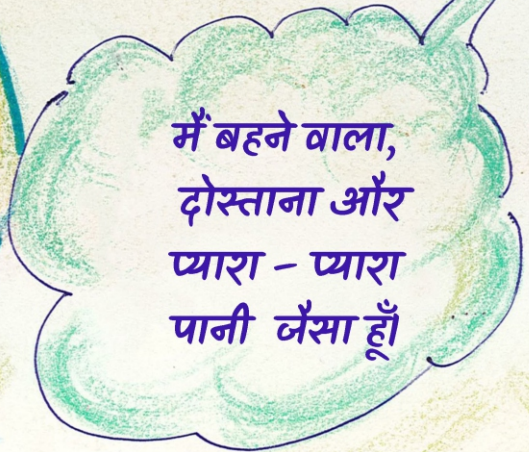 मैं बहने वाला,
दोस्ताना और
प्यारा - प्यारा
पानी जैसा हूँ।